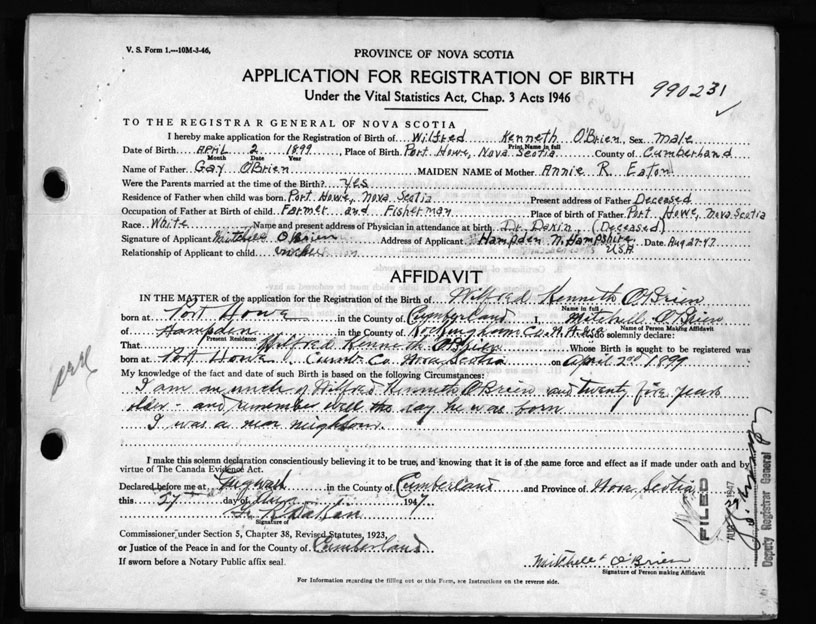 V. S. Form 1.—10M-3-46.
PROVINCE OF NOVA SCOTIA
APPLICATION FOR REGISTRATION OF BIRTH
Under the Vital Statistics Act, Chap. 3 Acts 1946
990231
TO THE REGISTRAR GENERAL OF NOVA SCOTIA
I hereby make application for the Registration of Birth of Wilfred Kenneth O'Brien, Sex male
Print Name in full
Date of Birth APRIL 2 1899, Place of Birth Port Howe, Nova Scotia County of Cumberland
Month Date Year
Name of Father Gay O'Brien MAIDEN NAME of Mother Annie R. Eaton
Were the Parents married at the time of the Birth? yes
Residence of Father when child was born Port Howe, Nova Scotia Present address of Father Deceased
Occupation of Father at Birth of child Farmer and Fisherman Place of birth of Father Port Howe, Nova Scotia
Race White Name and present address of Physician in attendance at birth Dr. Dakin (Deceased)
Signature of Applicant Mitchell O'Brien Address of Applicant Hampden N. Hampshire Date Aug 27-47
Relationship of Applicant to child uncle USA
AFFIDAVIT
IN THE MATTER of the application for the Registration of the Birth of Wilfred Kenneth O'Brien
Name in full
born at Port Howe in the County of Cumberland I, Mitchell O'Brien
Name of Person Making Affidavit
of Hampden in the County of Rockingham Co. do solemnly declare:
Present Residence
That Wilfred Kenneth O'Brien Whose Birth is sought to be registered was
born at Port Howe Cumb. Co. Nova Scotia on April 2nd 1899
My knowledge of the fact and date of such Birth is based on the following Circumstances:
I am an uncle of Wilfred Kenneth O'Brien and twenty five years
older - and remember well the day he was born
I was a near neighbour.
I make this solemn declaration conscientiously believing it to be true, and knowing that it is of the same force and effect as if made under oath and by
virtue of The Canada Evidence Act.
Declared before me at Pugwash in the County of Cumberland and Province of Nova Scotia
this 27 day of Aug 1947
Signature of
Commissioner under Section 5, Chapter 38, Revised Statutes, 1923,
or Justice of the Peace in and for the County of Cumberland
If sworn before a Notary Public affix seal.
Mitchell O'Brien
Signature of Person making Affidavit
For Information regarding the filling out of this Form, see Instructions on the reverse side.
FILED
AUG 1947
Deputy Registrar General